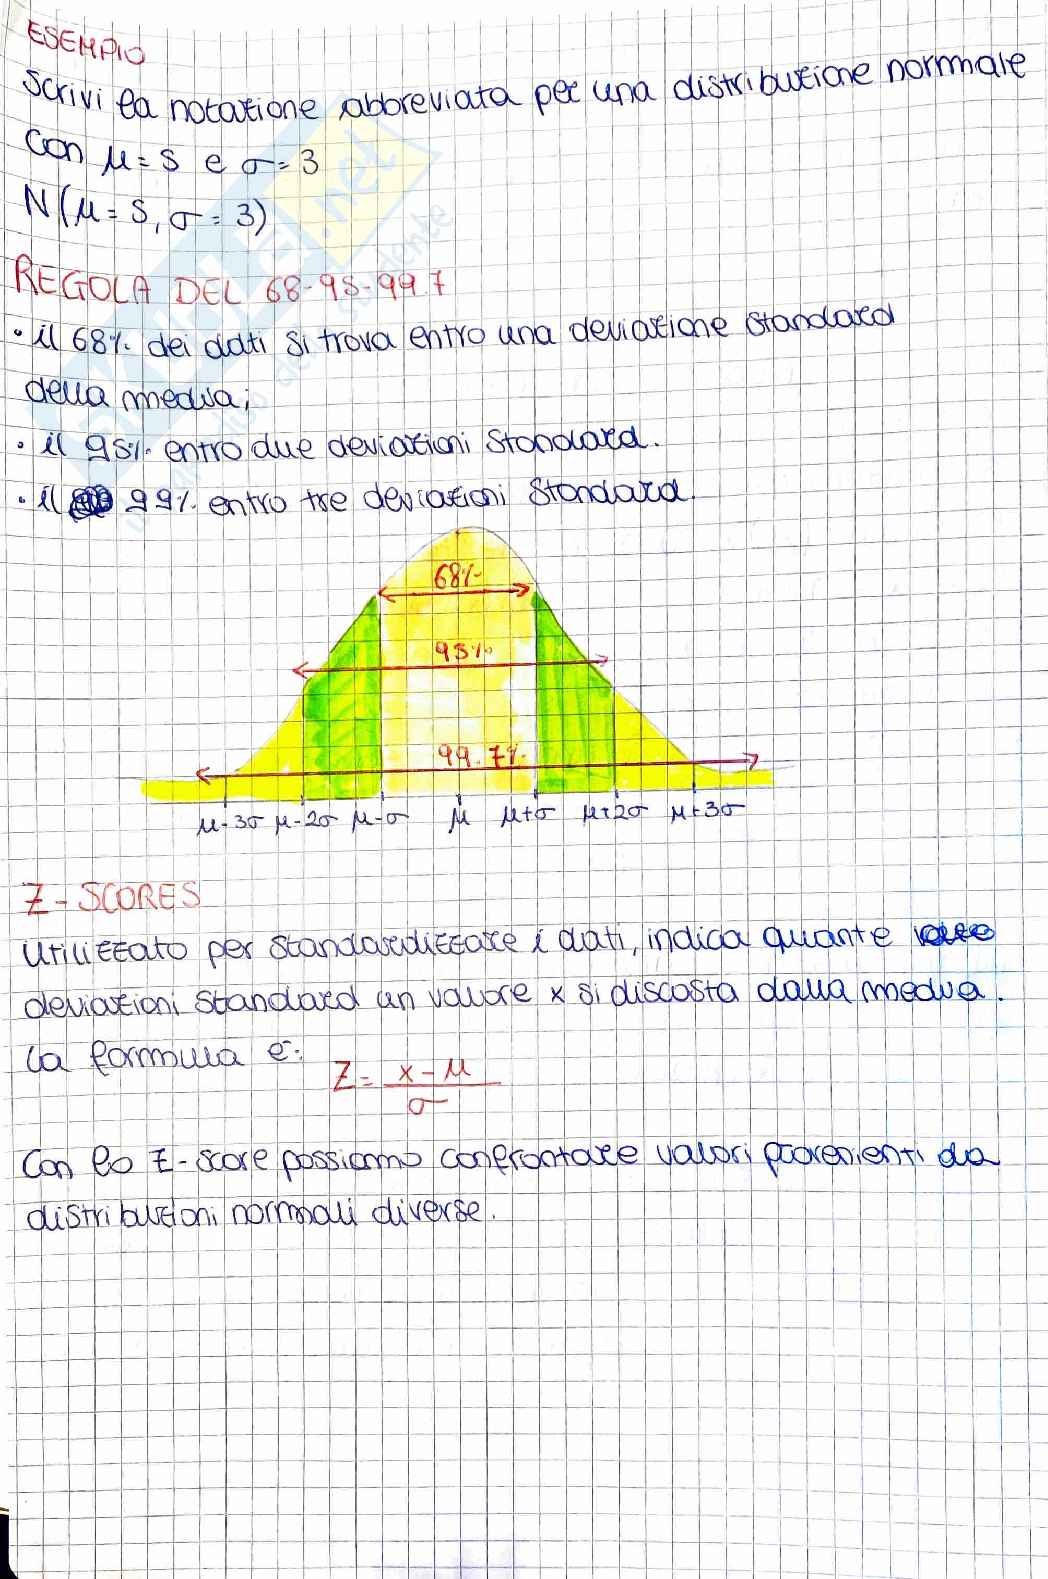 ESEMPIO
Scrivi la notazione abbreviata per una distribuzione normale
con μ = 5 e σ = 3
N(μ = 5, σ = 3)
REGOLA DEL 68-95-99.7
• il 68% dei dati si trova entro una deviazione standard
della media;
• il 95% entro due deviazioni standard.
• il 99% entro tre deviazioni standard.
68%
95%
99.7%
μ-3σ μ-2σ μ-σ μ μ+σ μ+2σ μ+3σ
Z-SCORES
Utilizzato per standardizzare i dati, indica quante
deviazioni standard un valore x si discosta dalla media.
La formula è:
Z = x - μ
σ
Con lo Z-score possiamo confrontare valori provenienti da
distribuzioni normali diverse.